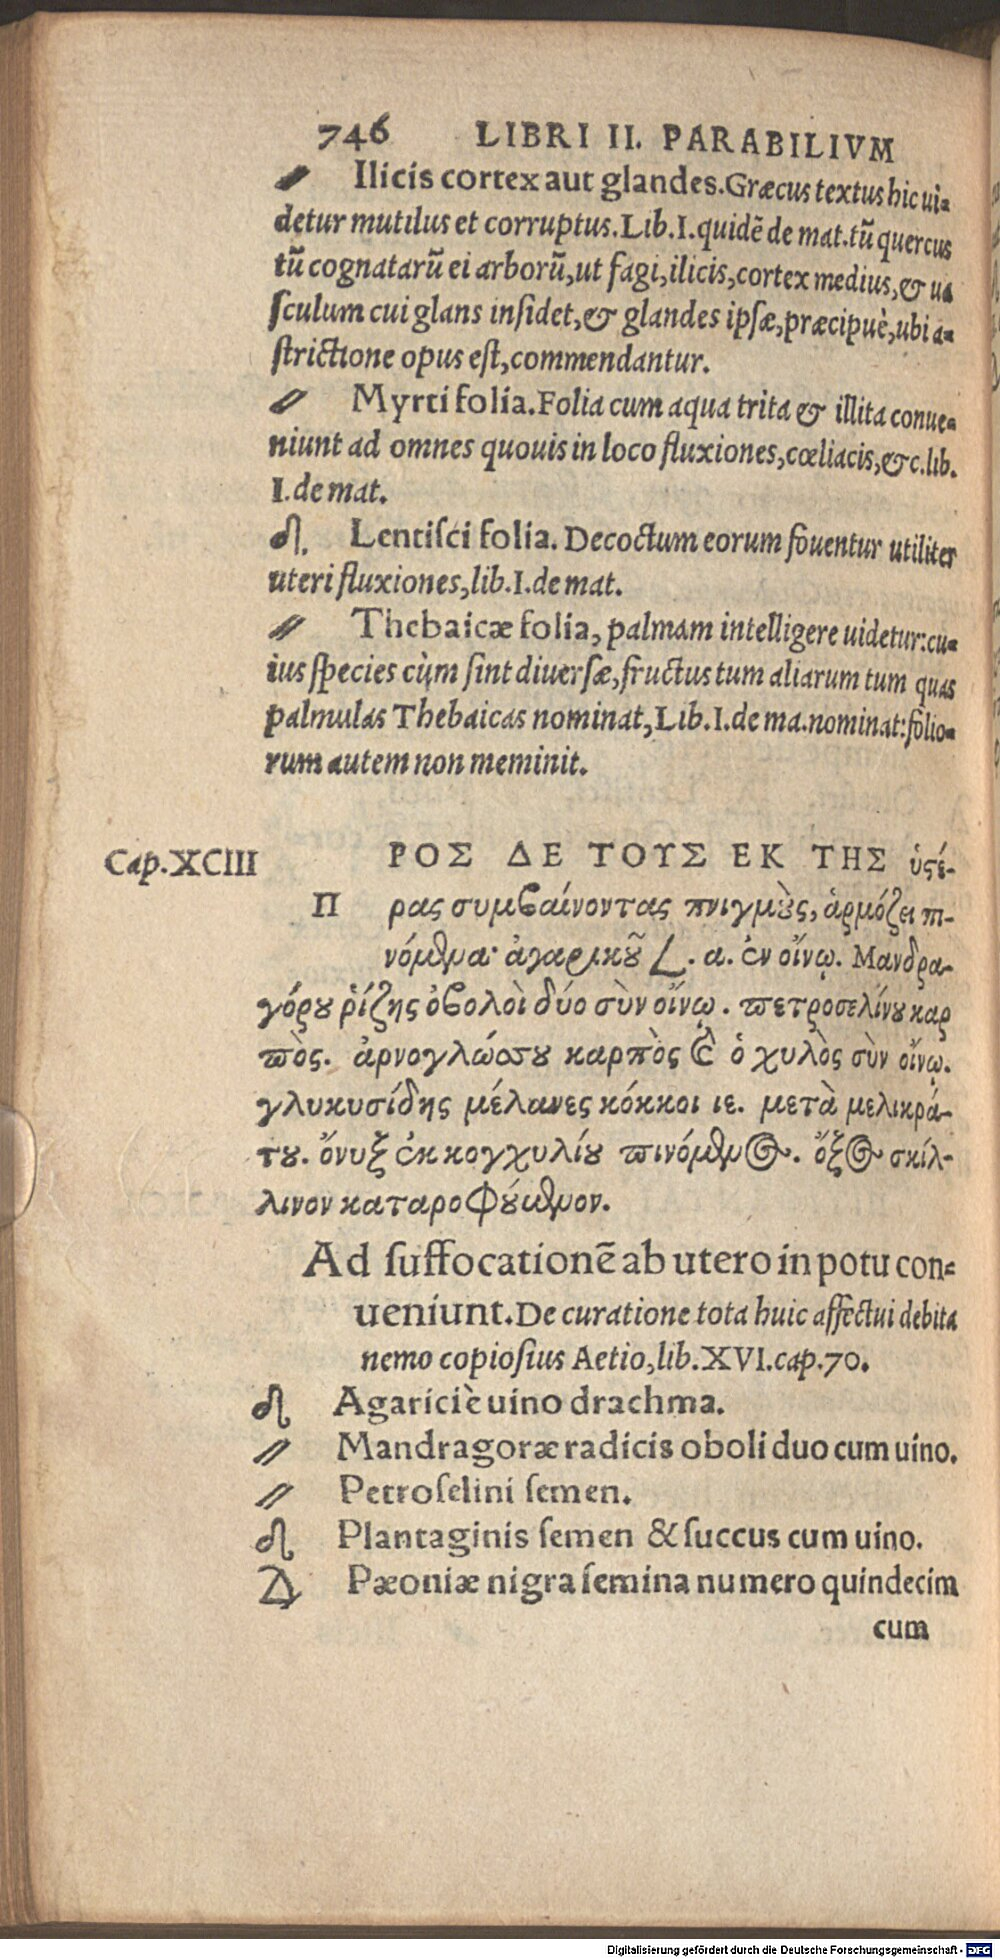 746 LIBRI II. PARABILIVM
Ilicis cortex aut glandes. Græcus textus hic ui-
detur mutilus et corruptus. Lib. I. quidē de mat. tū quercus
tū cognatarū ei arborū, ut fagi, ilicis, cortex medius, & ua
sculum cui glans insidet, & glandes ipsæ, præcipuè, ubi a-
strictione opus est, commendantur.
Myrti folia. Folia cum aqua trita & illita conue-
niunt ad omnes quouis in loco fluxiones, cœliacis, &c. lib.
I. de mat.
Lentisci folia. Decoctum eorum fouentur utiliter
uteri fluxiones, lib. I. de mat.
Thebaicæ folia, palmam intelligere uidetur: cu-
ius species cùm sint diuersæ, fructus tum aliarum tum quas
palmulas Thebaicas nominat, Lib. I. de ma. nominat: folio-
rum autem non meminit.
Cap. XCIII
ΡΟΣ ΔΕ ΤΟΥΣ ΕΚ ΤΗΣ ὑστέ-
Π ρας συμβαίνοντας πνιγμοὺς, ἁρμόζει πι-
νόμενα· ἀγαρικοῦ . α. ἐν οἴνῳ. Μανδρα-
γόρου ῥίζης ὀβολοὶ δύο σὺν οἴνῳ. πετροσελίνου καρ
πὸς. ἀρνογλώσσου καρπὸς καὶ ὁ χυλὸς σὺν οἴνῳ.
γλυκυσίδης μέλανες κόκκοι ιε. μετὰ μελικρά-
του. ὄνυξ ἐκ κογχυλίου πινόμενος. ὄξος σκίλ-
λινον καταροφούμενον.
Ad suffocationē ab utero in potu con-
ueniunt. De curatione tota huic affectui debita
nemo copiosius Aetio, lib. XVI. cap. 70.
Agarici è uino drachma.
Mandragoræ radicis oboli duo cum uino.
Petroselini semen.
Plantaginis semen & succus cum uino.
Pæoniæ nigra semina numero quindecim
cum
Digitalisierung gefördert durch die Deutsche Forschungsgemeinschaft - DFG